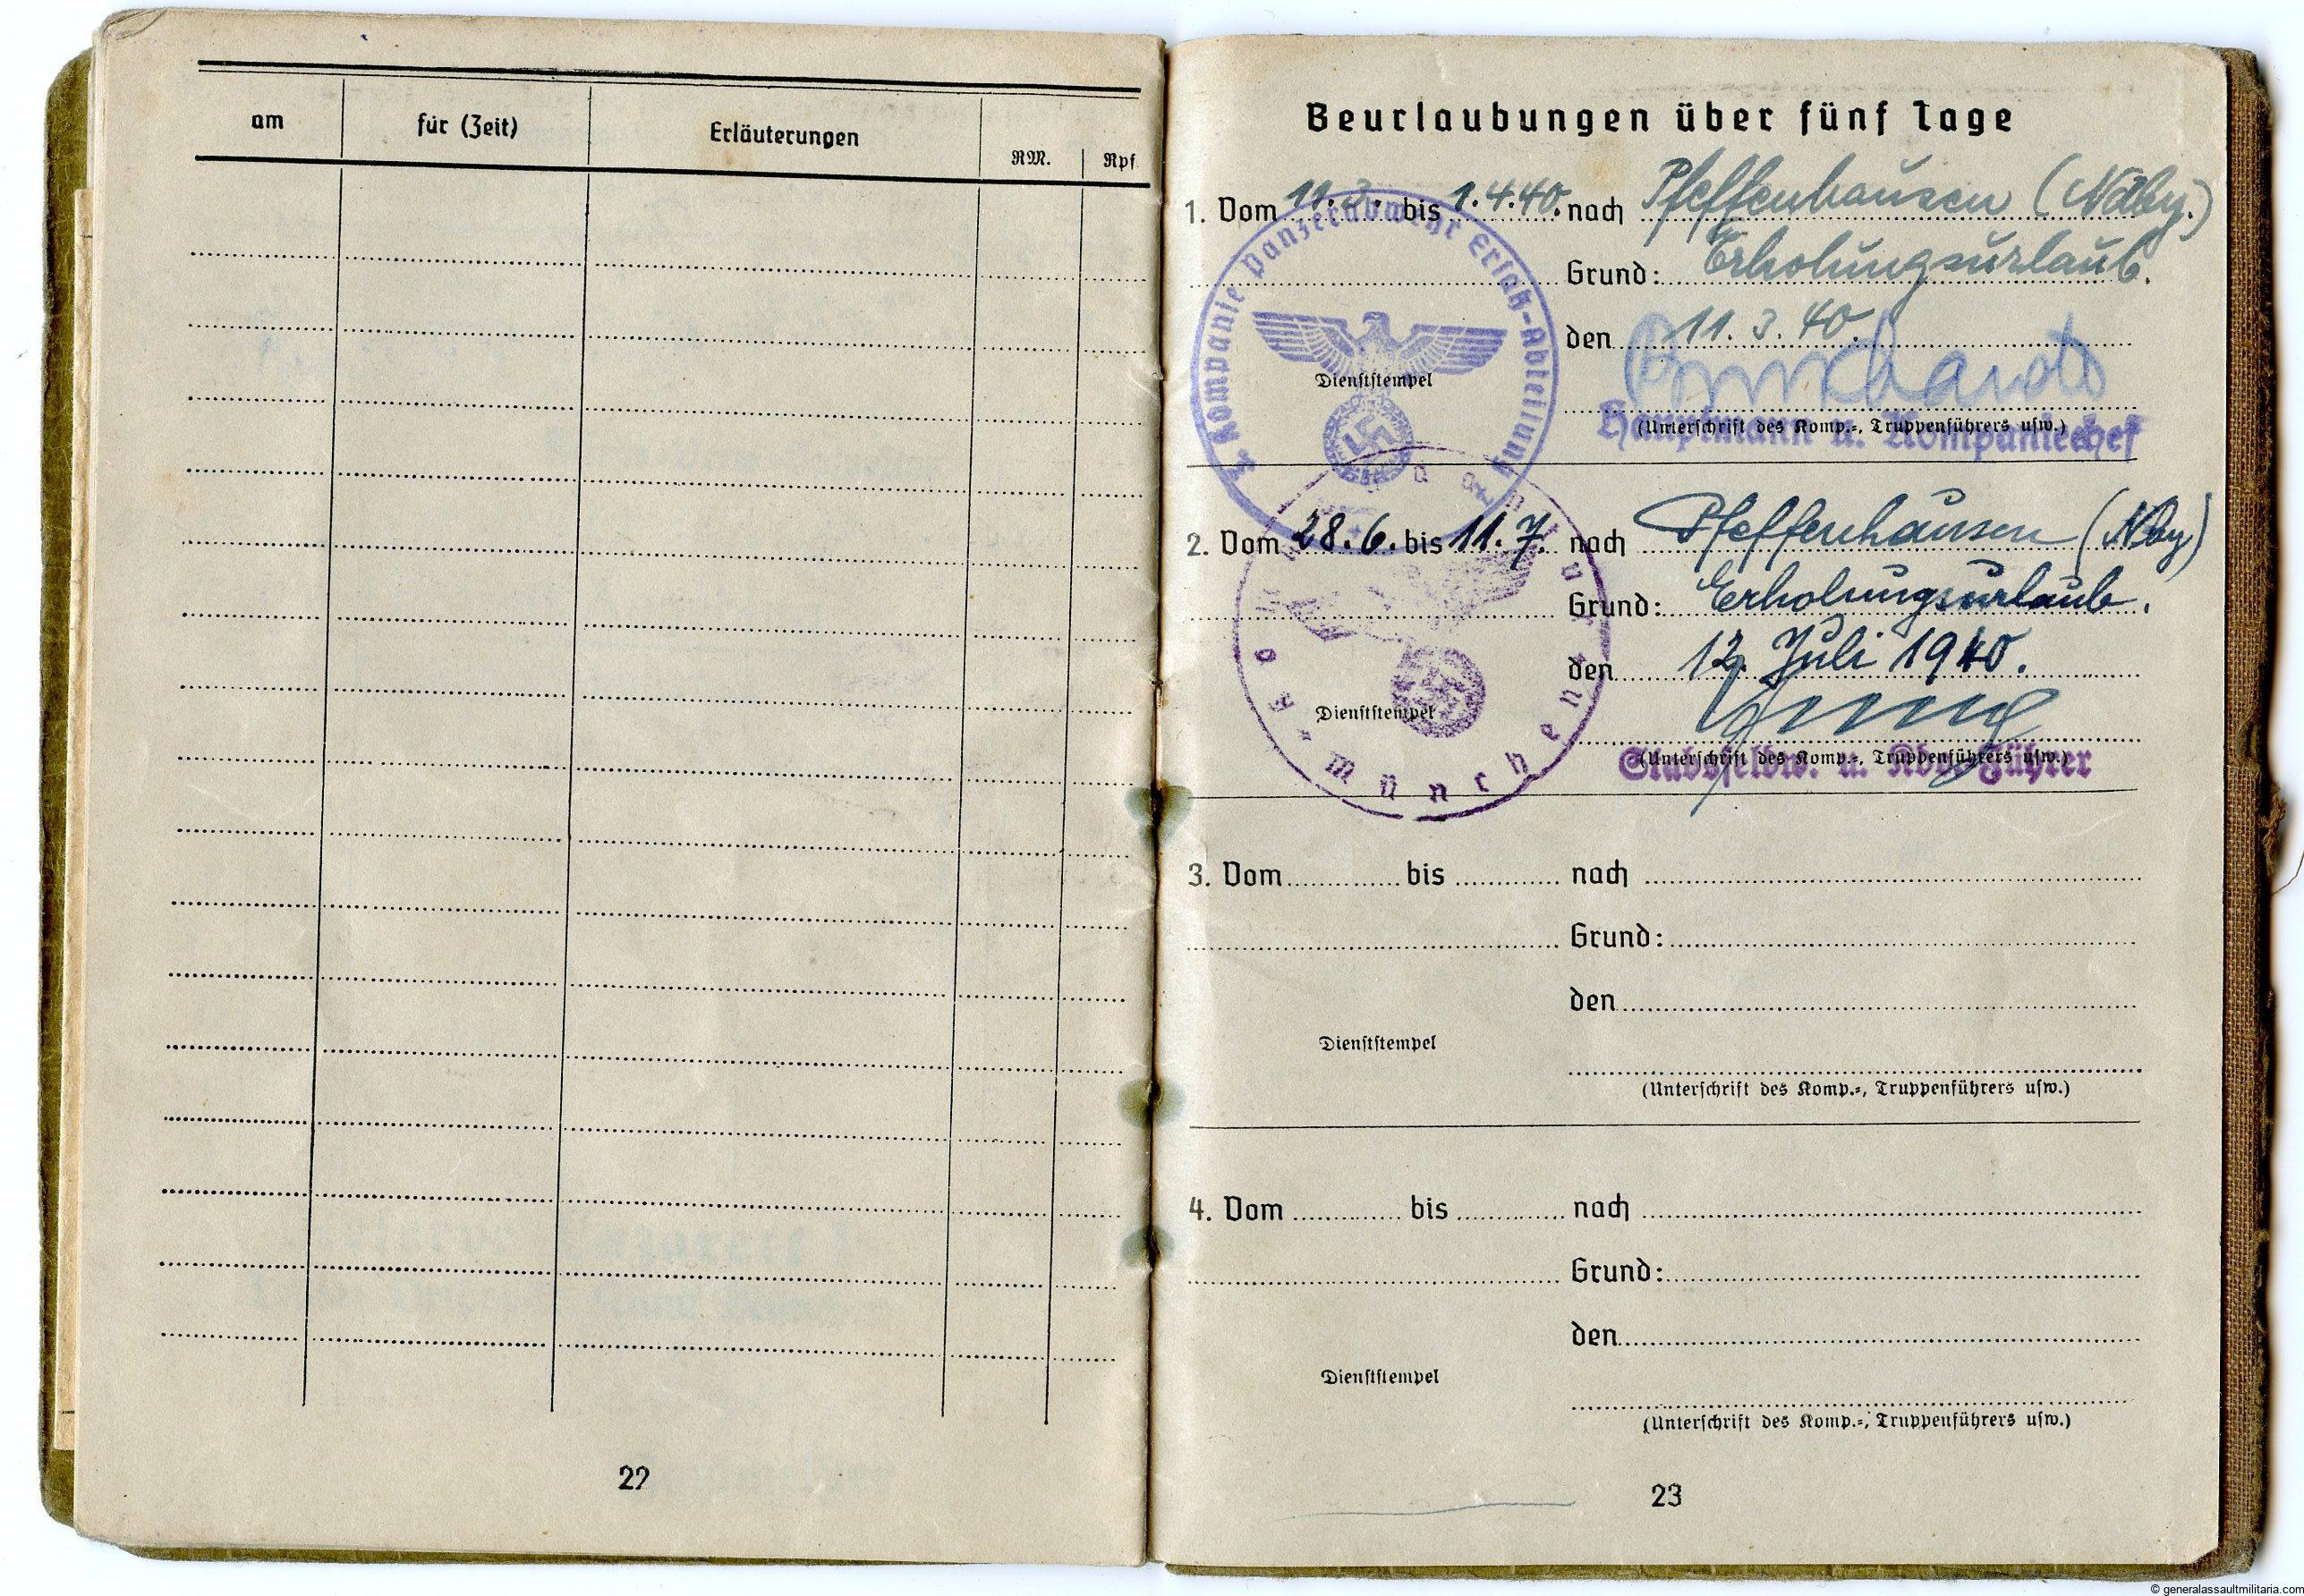 am für (Zeit) Erläuterungen RM. Rpf
22
Beurlaubungen über fünf Tage
1. Vom 11.3. bis 1.4.40. nach Pfeffenhausen (Ndby.)
Grund: Erholungsurlaub.
den 11.3.40.
Dienststempel
(Unterschrift des Komp.-, Truppenführers usw.)
Hauptmann u. Kompaniechef
3. Kompanie Panzerabwehr Ersatz-Abteilung
2. Vom 28.6. bis 11.7. nach Pfeffenhausen (Nby)
Grund: Erholungsurlaub.
den 12. Juli 1940.
Dienststempel
(Unterschrift des Komp.-, Truppenführers usw.)
Stabsfeldw. u. Abt. Führer
München
3. Vom bis nach
Grund:
den
Dienststempel
(Unterschrift des Komp.-, Truppenführers usw.)
4. Vom bis nach
Grund:
den
Dienststempel
(Unterschrift des Komp.-, Truppenführers usw.)
23
© generalassaultmilitaria.com